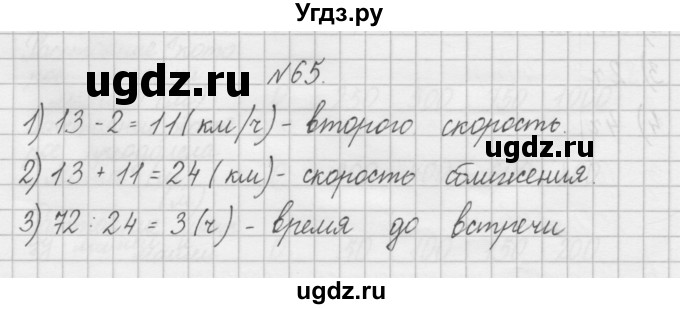 Угдз.ру
ugdz.ru
№65.
1) 13 - 2 = 11 (км/ч) - второго скорость.
ugdz.ru
2) 13 + 11 = 24 (км) - скорость сближения.
3) 72 : 24 = 3 (ч) - время до встречи
ugdz.ru
ugdz.ru